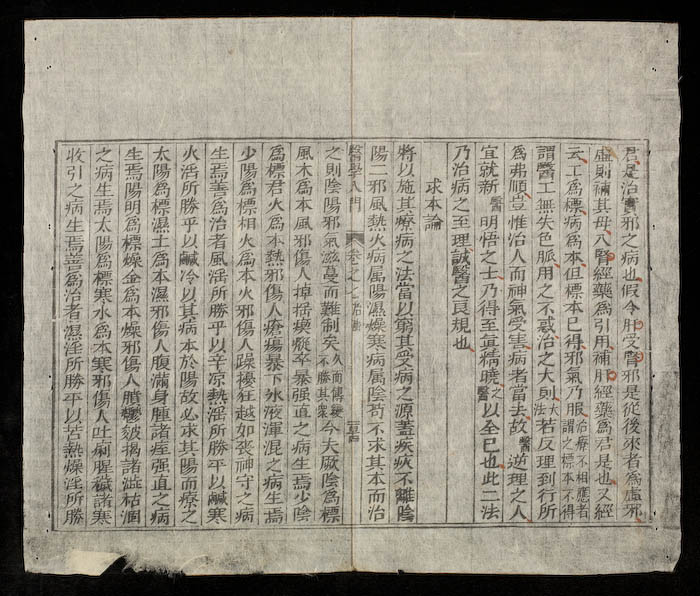 君是治實邪之病也假令肝受腎邪是從後來者爲虛邪
虛則補其母入腎經藥爲引用補肝經藥爲君是也又經
云工爲標病爲本但標本已得邪氣乃服治療不相應者謂之標本不得
謂醫工無失色脈用之不惑治之大則法若反理到行所
爲弗順豈惟治人而神氣受害病者當去故醫逆理之人
宜就新醫明悟之士乃得至眞精曉醫之以全己也此二法
乃治病之至理誠醫之良規也
求本論
將以施其療病之法當以窮其受病之源蓋疾疢不離陰
陽二邪風熱火病屬陽濕燥寒病屬陰苟不求其本而治
醫學入門 卷之七 治法
之則陰陽邪氣滋蔓而難制矣久而傳變不勝其衆今夫厥陰爲標
風木爲本風邪傷人掉搖瘈瘲卒暴强直之病生焉少陰
爲標君火爲本熱邪傷人瘡瘍暴下水液渾混之病生焉
少陽爲標相火爲本火邪傷人躁擾狂越如喪神守之病
生焉善爲治者風淫所勝平以辛凉熱淫所勝平以鹹寒
火淫所勝平以鹹冷以其病本於陽故必求其陽而療之
太陰爲標濕土爲本濕邪傷人腹滿身腫諸痙强直之病
生焉陽明爲標燥金爲本燥邪傷人膹鬱皴揭諸澁枯涸
之病生焉太陽爲標寒水爲本寒邪傷人吐痢腥穢諸寒
收引之病生焉善爲治者濕淫所勝平以苦熱燥淫所勝